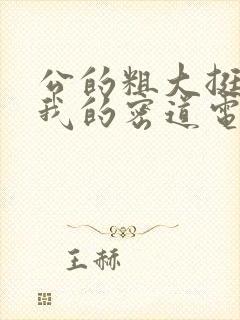 公的粗大挺
我的密道电
王赫